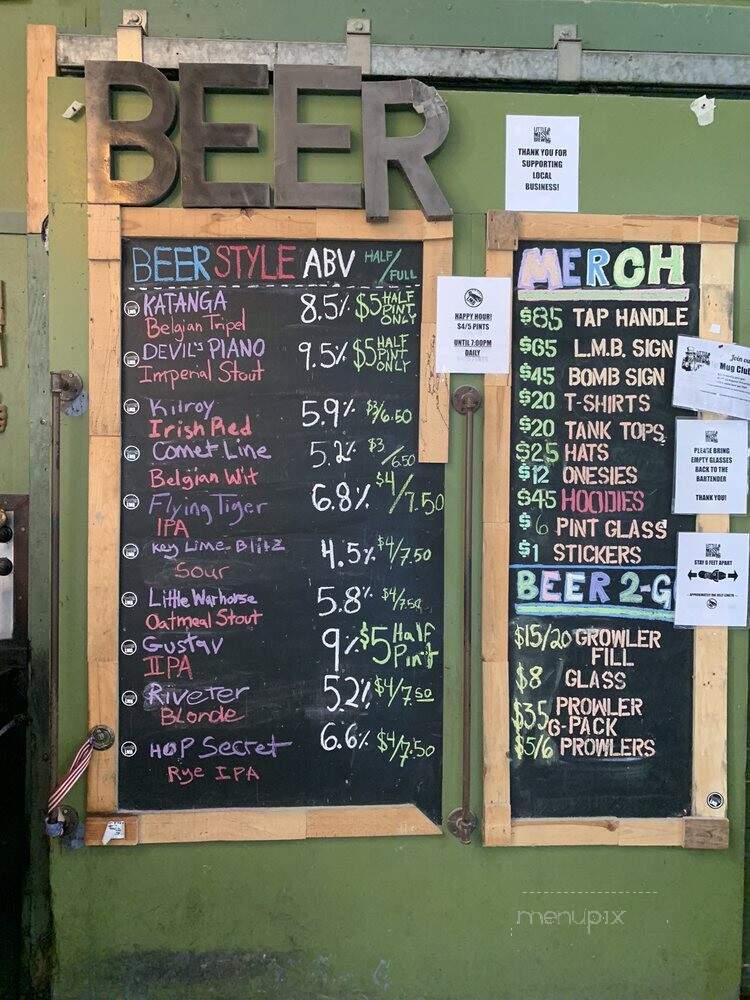 BEER
BEER STYLE ABV HALF/FULL
KATANGA 8.5% $5 HALF PINT ONLY
Belgian Tripel
DEVIL'S PIANO 9.5% $5 HALF PINT ONLY
Imperial Stout
Kilroy 5.9% $3/6.50
Irish Red
Comet Line 5.2% $3/6.50
Belgian Wit
Flying Tiger 6.8% $4/7.50
IPA
Key Lime Blitz 4.5% $4/7.50
Sour
Little Warhorse 5.8% $4/7.50
Oatmeal Stout
Gustav 9% $5 Half Pint
IIPA
Riveter 5.2% $4/7.50
Blonde
HOP Secret 6.6% $4/7.50
Rye IPA
HAPPY HOUR!
$4/5 PINTS
UNTIL 7:00PM
DAILY
THANK YOU FOR
SUPPORTING
LOCAL
BUSINESS!
MERCH
$85 TAP HANDLE
$65 L.M.B. SIGN
$45 BOMB SIGN
$20 T-SHIRTS
$20 TANK TOPS
$25 HATS
$12 ONESIES
$45 HOODIES
$6 PINT GLASS
$1 STICKERS
BEER 2-G
$15/20 GROWLER
FILL
$8 GLASS
$35 PROWLER
6-PACK
$5/6 PROWLERS
Join our
Mug Clu
PLEASE BRING
EMPTY GLASSES
BACK TO THE
BARTENDER
THANK YOU!
STAY 6 FEET APART
menupix